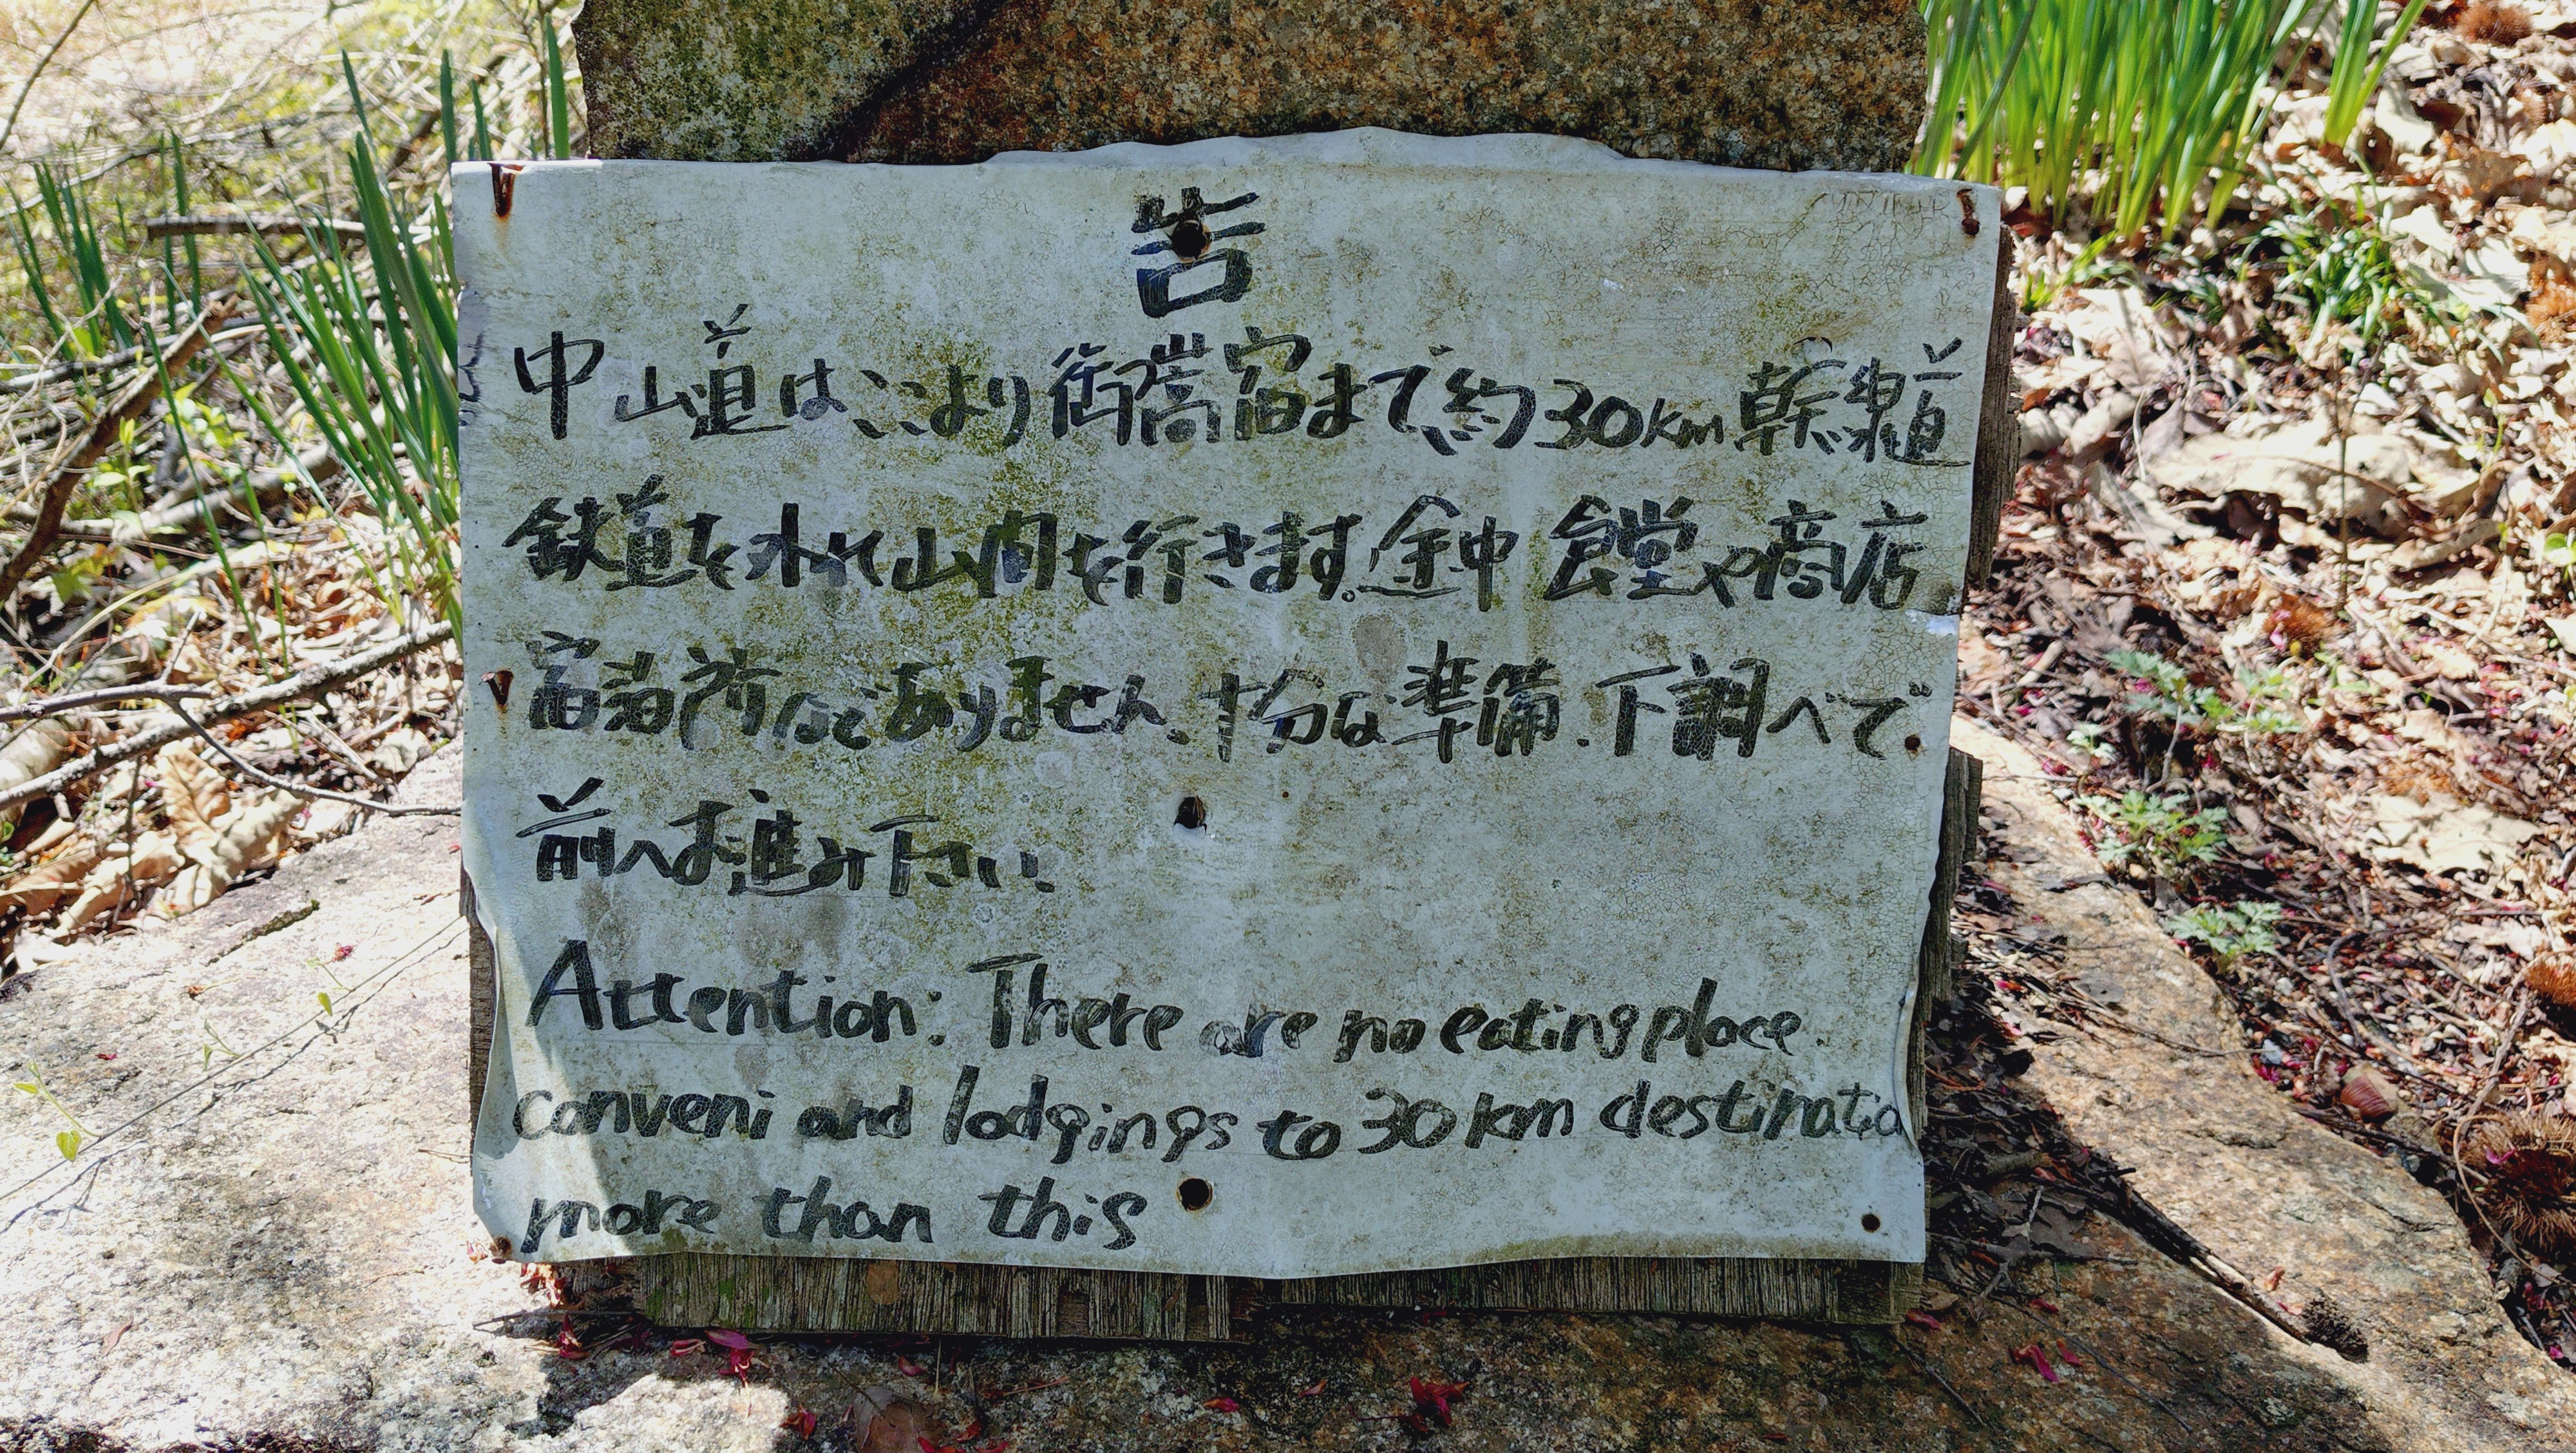 告
中山道はここより御嵩宿まで約30km幹線道
鉄道を外れ山間を行きます。途中 食堂や商店
宿泊所などありません。十分な準備.下調べで
前へお進み下さい
Attention: There are no eating place.
conveni and lodgings to 30 km destinatio
more than this